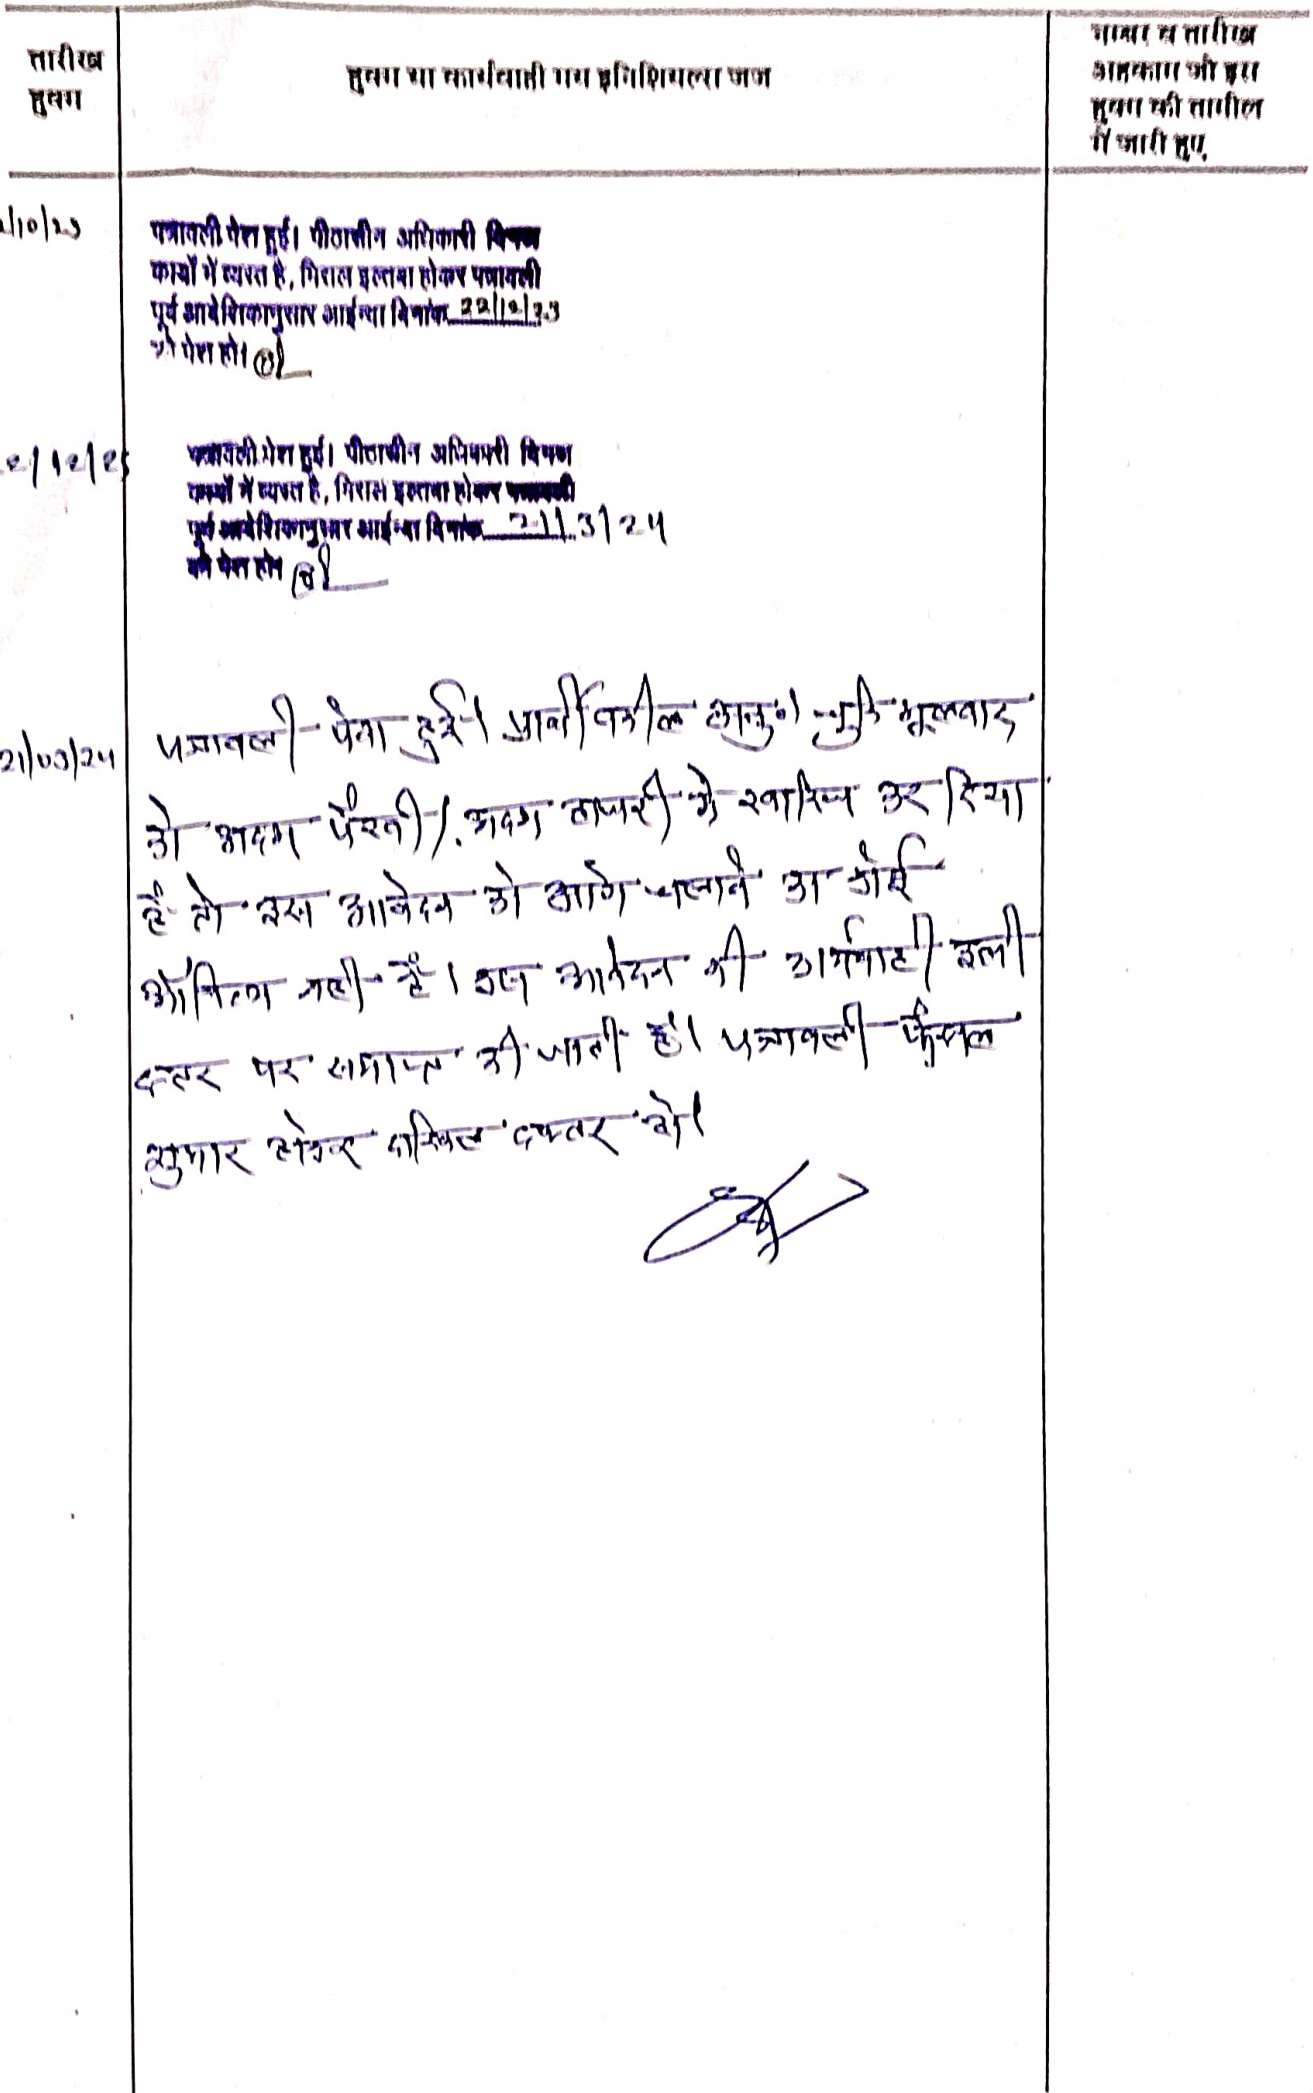 तारीख
हुक्म
हुक्म या कार्यवाही मय इनिशियल्स जज
नम्बर व तारीख
अहकाम जो इस
हुक्म की तामील
में जारी हुए
/10/23
पत्रावली पेश हुई। पीठासीन अधिकारी विभिन्न
कार्यों में व्यस्त है, मिसल इल्तवा होकर पत्रावली
पूर्व आदेशिकानुसार आईन्दा दिनांक 22/12/23
को पेश हो।
2/12/23
पत्रावली पेश हुई। पीठासीन अधिकारी विभिन्न
कार्यों में व्यस्त है, मिसल इल्तवा होकर पत्रावली
पूर्व आदेशिकानुसार आईन्दा दिनांक 21/3/24
को पेश हो।
21/03/24
पत्रावली पेश हुई। प्रार्थी वकील चुकि मूलवाद
को अदम पैरवी/अदम हाजरी में खारिज कर दिया
है तो इस आवेदन को आगे चलाने का कोई
औचित्य नही है। इस आवेदन की कार्यवाही इसी
स्तर पर समाप्त की जाती है। पत्रावली फैसल
शुमार होकर दाखिल दफ्तर हो।